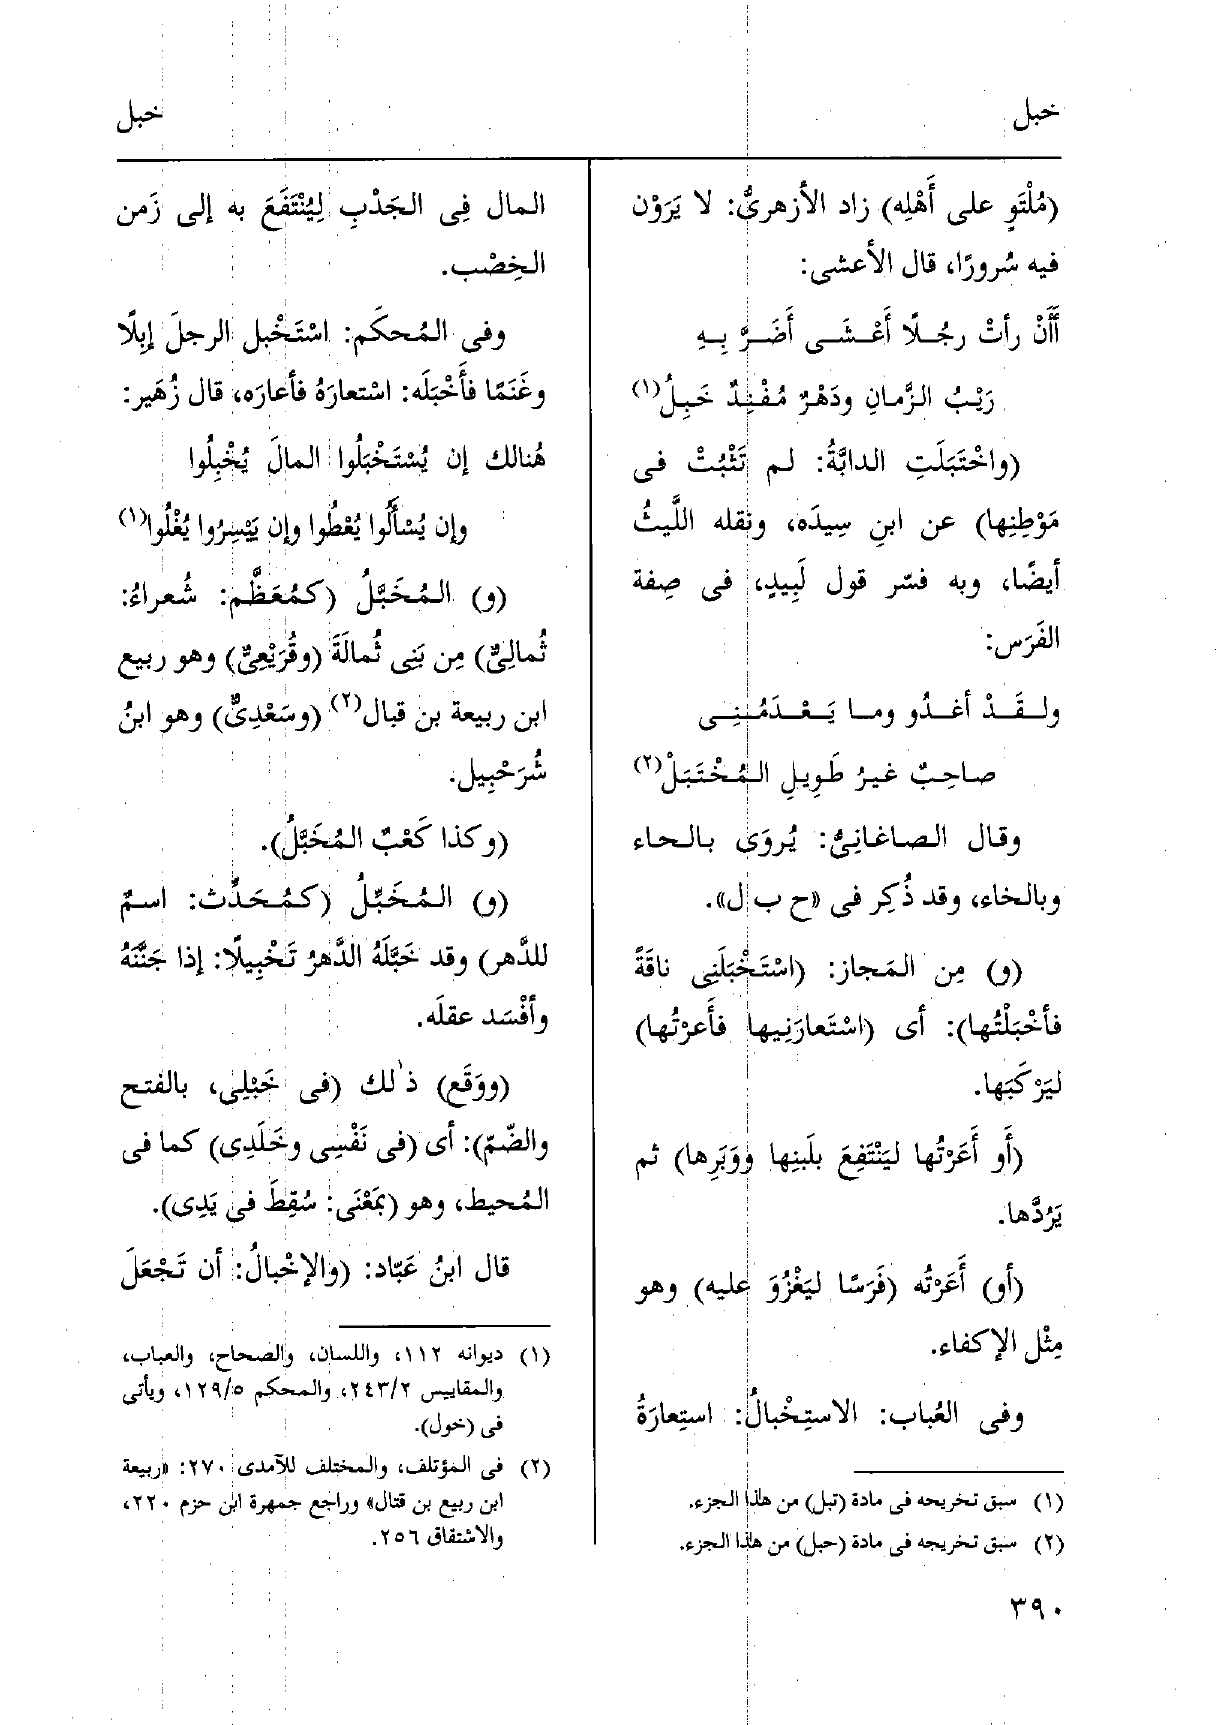 خبل
خبل
(مُلْتَوٍ على أَهْلِه) زاد الأزهرىُّ: لا يَرَوْن
فيه سُرورًا، قال الأعشى:
أَأَنْ رأتْ رجُـلًا أَعْـشَـى أَضَـرَّ بِـهِ
رَيْبُ الزَّمانِ ودَهْرٌ مُفْنِدٌ خَبِلُ(١)
(واخْتَبَلَتِ الدابَّةُ: لـم تَثْبُتْ فى
مَوْطِنِها) عن ابنِ سِيدَه، ونقله اللَّيثُ
أيضًا، وبه فسّر قول لَبِيدٍ، فى صِفة
الفَرَس:
ولـقَـدْ أغـدُو ومـا يَـعْـدَمُـنِـى
صاحِبٌ غيرُ طَوِيلِ المُخْتَبَلْ(٢)
وقال الصاغانىُّ: يُروَى بالحاء
وبالخاء، وقد ذُكِر فى «ح ب ل».
(و) مِن المَجاز: (اسْتَخْبَلَنِى ناقَةً
فأخْبَلْتُها): أى (اسْتَعارَنِيها فأَعرْتُها)
ليَرْكَبَها.
(أَو أَعَرْتُها ليَنْتَفِعَ بلَبنِها ووَبَرِها) ثم
يَرُدَّها.
(أو) أَعَرْتُه (فَرَسًا ليَغْزُوَ عليه) وهو
مِثْل الإكفاء.
وفى العُباب: الاستِخْبالُ: استِعارَةُ
(١) سبق تخريجه فى مادة (تبل) من هذا الجزء.
(٢) سبق تخريجه فى مادة (حبل) من هذا الجزء.
المال فِى الجَدْبِ لِيُنْتَفَعَ به إلى زَمن
الخِصْب.
وفى المُحكَم: اسْتَخْبل الرجلَ إبلًا
وغَنَمًا فأَخْبَلَه: اسْتعارَهُ فأعارَه، قال زُهَير:
هُنالك إن يُسْتَخْبَلُوا المالَ يُخْبِلُوا
وإن يُسْأَلُوا يُعْطُوا وإن يَيْسِرُوا يُغْلُوا(١)
(و) المُخَبَّلُ (كمُعَظَّمٍ: شُعراءُ:
ثُمالِىٌّ) مِن بَنِى ثُمالَةَ (وقُرَيْعِىٌّ) وهو ربيع
ابن ربيعة بن قبال(٢) (وسَعْدِىٌّ) وهو ابنُ
شُرَحْبِيل.
(وكذا كَعْبٌ المُخَبَّلُ).
(و) المُخَبِّلُ (كمُحَدِّث: اسمٌ
للدَّهر) وقد خَبَّلَهُ الدَّهرُ تَخْبِيلًا: إذا جَنَّنَهُ
وأفْسَد عقلَه.
(ووَقَع) ذلك (فى خَبْلِى، بالفتح
والضّمّ): أى (فى نَفْسِى وخَلَدِى) كما فى
المُحيط، وهو (بمَعْنَى: سُقِطَ فى يَدِى).
قال ابنُ عَبّاد: (والإخْبالُ: أن تَجْعَلَ
(١) ديوانه ١١٢، واللسان، والصحاح، والعباب،
والمقاييس ٢٤٣/٢، والمحكم ١٢٩/٥، ويأتى
فى (خول).
(٢) فى المؤتلف، والمختلف للآمدى ٢٧٠: «ربيعة
ابن ربيع بن قتال» وراجع جمهرة ابن حزم ٢٢٠،
والاشتقاق ٢٥٦.
٣٩٠